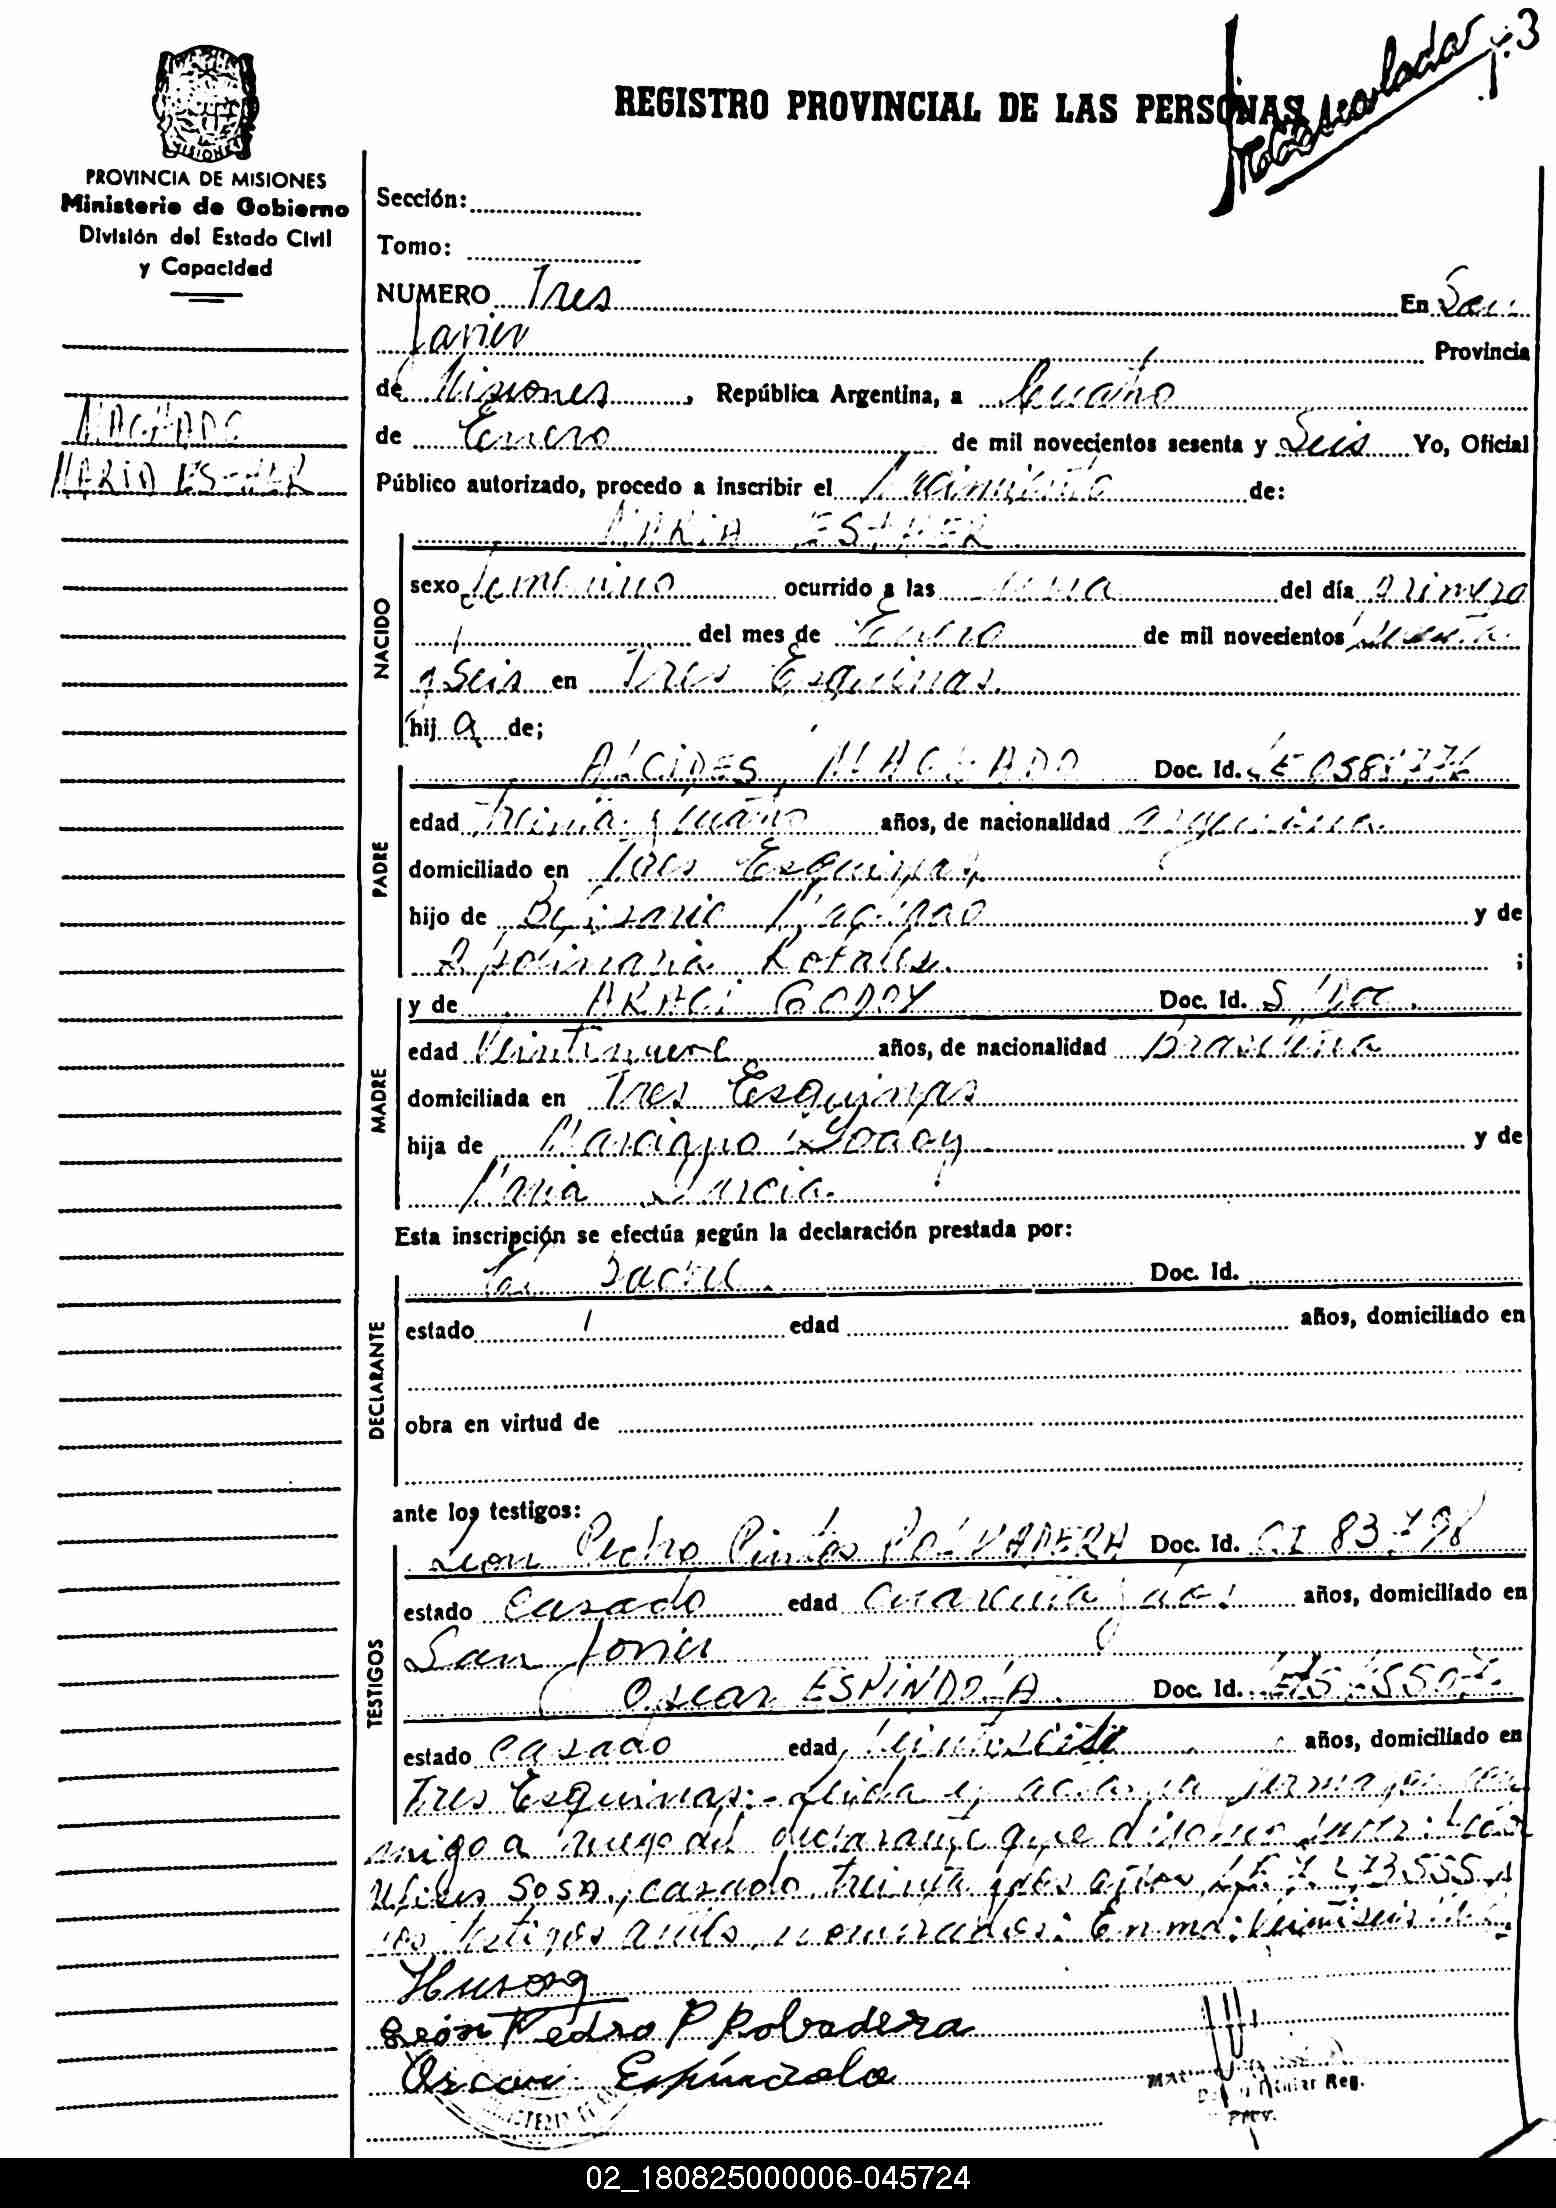 3
REGISTRO PROVINCIAL DE LAS PERSONAS
MISIONES
PROVINCIA DE MISIONES
Ministerio de Gobierno
División del Estado Civil
y Capacidad
Sección:
Tomo:
NUMERO Tres En San
Javier Provincia
de Misiones, República Argentina, a Cuatro
MACHADO
de Enero de mil novecientos sesenta y Seis Yo, Oficial
MARIA ESTHER
Público autorizado, procedo a inscribir el Nacimiento de:
NACIDO
MARIA ESTHER
sexo femenino ocurrido a las del día primero
del mes de Enero de mil novecientos sesenta
y Seis en Tres Esquinas.
hija de;
PADRE
ALCIDES MACHADO Doc. Id. LE
edad treinta y cuatro años, de nacionalidad argentina
domiciliado en Tres Esquinas
hijo de Belisario Machado y de
Apolinaria ;
MADRE
y de ARACI GODOY Doc. Id. S/Doc.
edad Veintinueve años, de nacionalidad Brasileña
domiciliada en Tres Esquinas
hija de Marciano Godoy y de
Maria Garcia
Esta inscripción se efectúa según la declaración prestada por:
DECLARANTE
El Padre. Doc. Id.
estado edad años, domiciliado en
obra en virtud de
ante los testigos:
TESTIGOS
Leon Pedro Pintos POLVADERA Doc. Id. CI 83798
estado casado edad cuarenta y dos años, domiciliado en
San Javier
Oscar ESPINDOLA Doc. Id.
estado casado edad años, domiciliado en
Tres Esquinas:- Leida el acta la firma con
migo a ruego del declarante que dijo no
SOSA, casado, treinta y dos años, L.E. 7.273.555 y
los testigos antes nombrados: Enmd:
León Pedro P Polvadera
Oscar Espíndola
Reg.
02_180825000006-045724